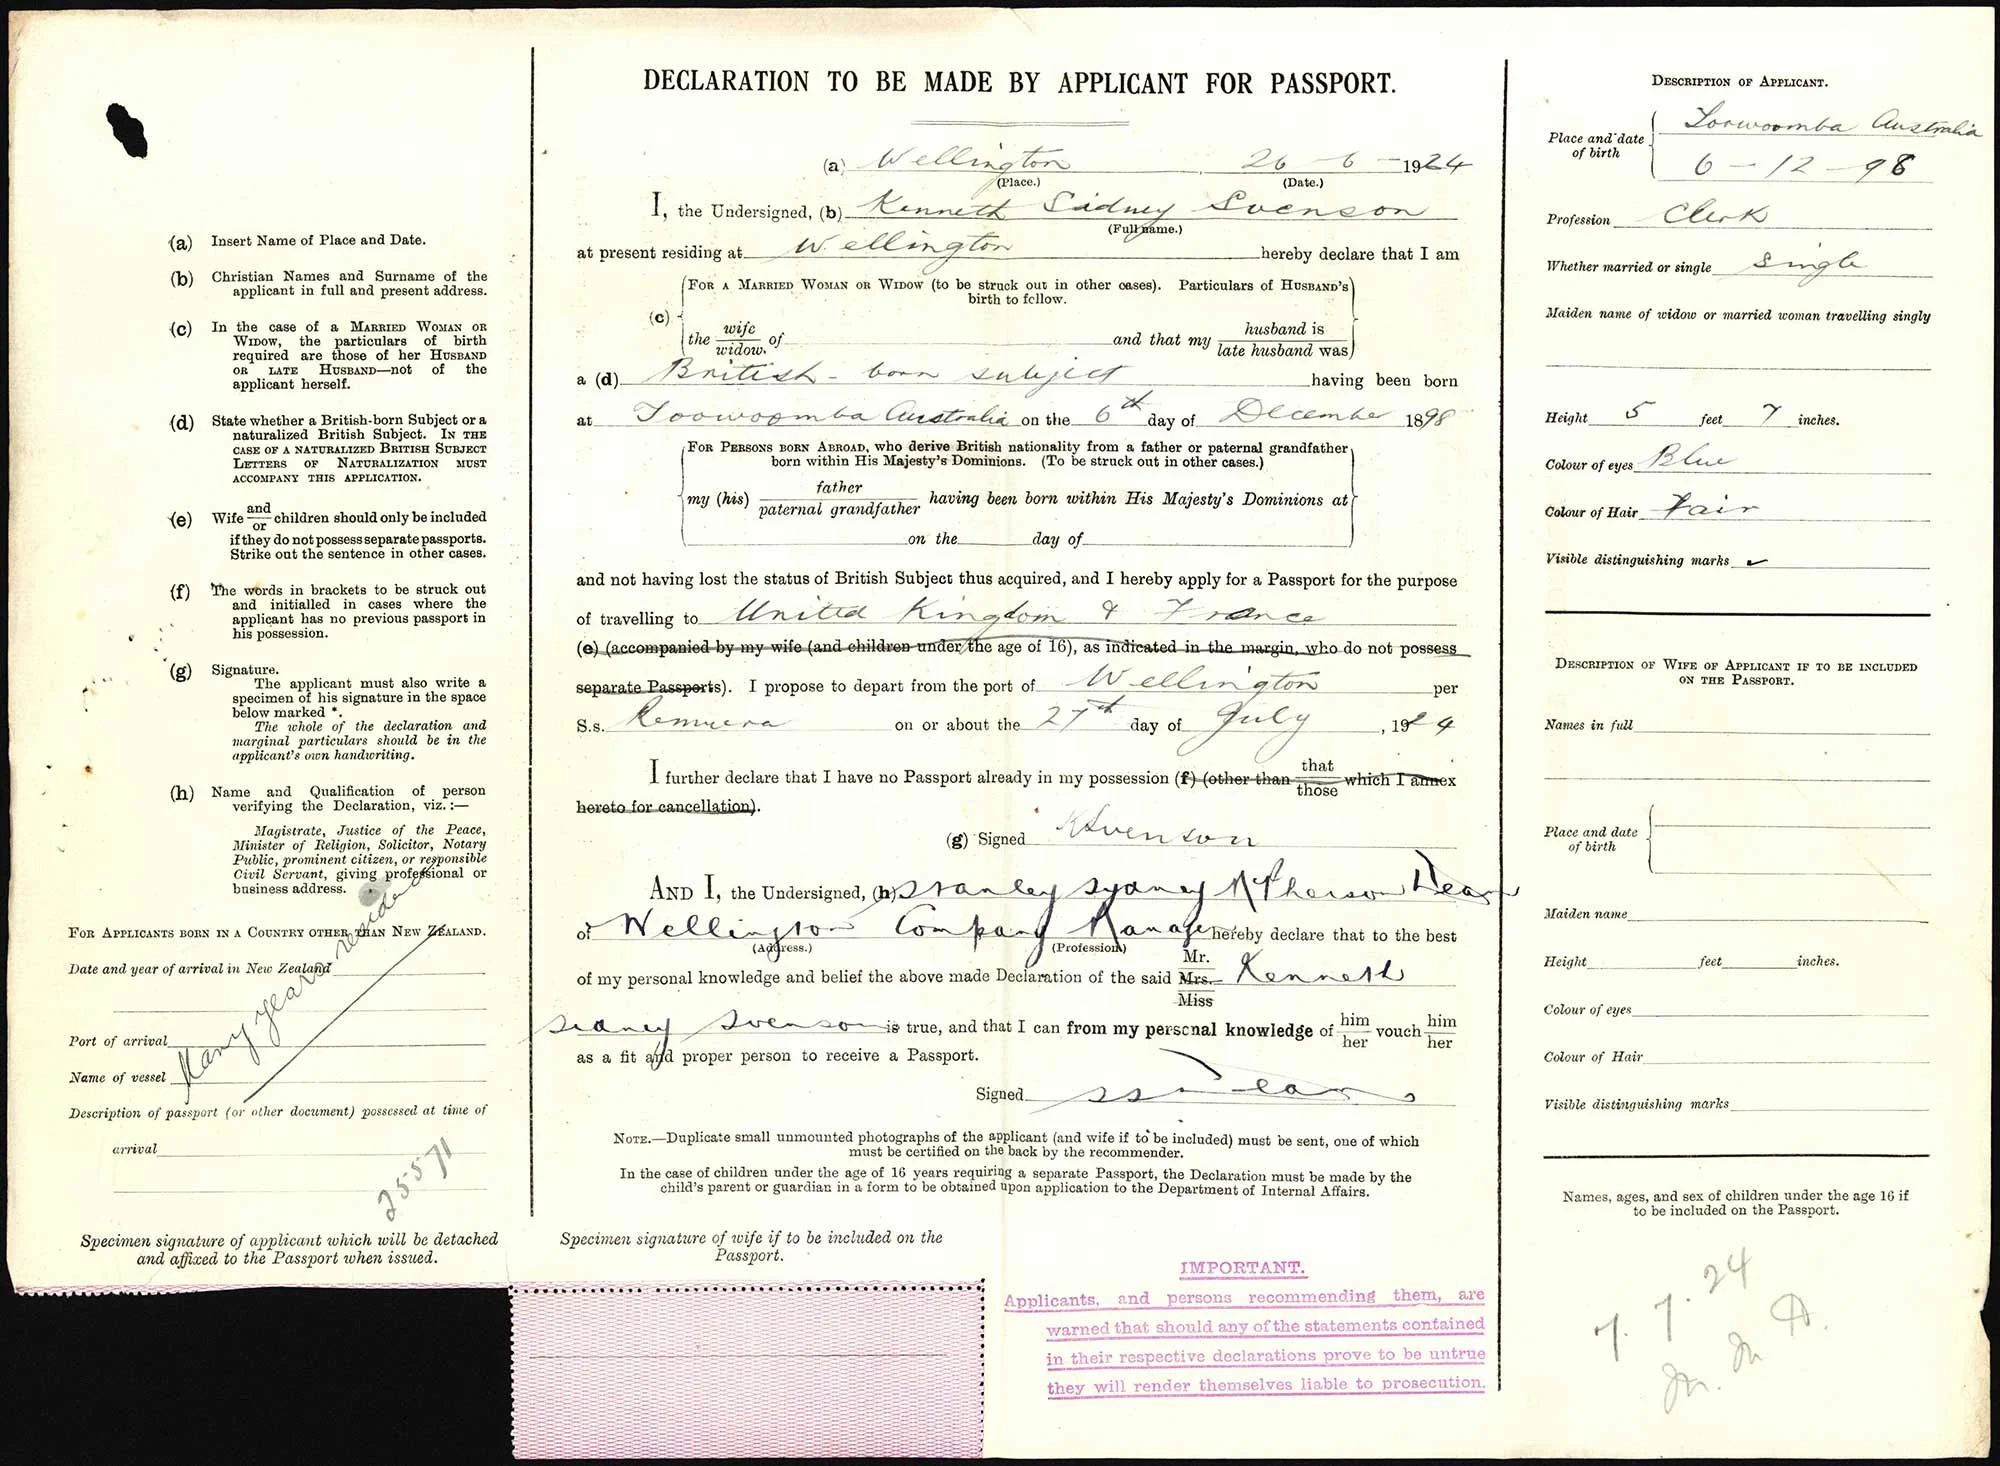 (a) Insert Name of Place and Date.
(b) Christian Names and Surname of the
applicant in full and present address.
(c) In the case of a MARRIED WOMAN OR
WIDOW, the particulars of birth
required are those of her HUSBAND
OR LATE HUSBAND—not of the
applicant herself.
(d) State whether a British-born Subject or a
naturalized British Subject. IN THE
CASE OF A NATURALIZED BRITISH SUBJECT
LETTERS OF NATURALIZATION MUST
ACCOMPANY THIS APPLICATION.
(e) Wife and/or children should only be included
if they do not possess separate passports.
Strike out the sentence in other cases.
(f) The words in brackets to be struck out
and initialled in cases where the
applicant has no previous passport in
his possession.
(g) Signature.
The applicant must also write a
specimen of his signature in the space
below marked *.
The whole of the declaration and
marginal particulars should be in the
applicant's own handwriting.
(h) Name and Qualification of person
verifying the Declaration, viz.:—
Magistrate, Justice of the Peace,
Minister of Religion, Solicitor, Notary
Public, prominent citizen, or responsible
Civil Servant, giving professional or
business address.
FOR APPLICANTS BORN IN A COUNTRY OTHER THAN NEW ZEALAND.
Date and year of arrival in New Zealand
Port of arrival
Name of vessel
Many years resident
Description of passport (or other document) possessed at time of
arrival
25571
Specimen signature of applicant which will be detached
and affixed to the Passport when issued.
DECLARATION TO BE MADE BY APPLICANT FOR PASSPORT.
(a) Wellington, 26-6-1924
(Place.) (Date.)
I, the Undersigned, (b) Kenneth Sidney Svenson
(Full name.)
at present residing at Wellington hereby declare that I am
FOR A MARRIED WOMAN OR WIDOW (to be struck out in other cases). Particulars of HUSBAND'S
birth to follow.
(c) the wife/widow of and that my husband is/late husband was
a (d) British-born subject having been born
at Toowoomba Australia on the 6th day of December 1898
FOR PERSONS BORN ABROAD, who derive British nationality from a father or paternal grandfather
born within His Majesty's Dominions. (To be struck out in other cases.)
my (his) father/paternal grandfather having been born within His Majesty's Dominions at
on the day of
and not having lost the status of British Subject thus acquired, and I hereby apply for a Passport for the purpose
of travelling to United Kingdom & France
(e) (accompanied by my wife (and children under the age of 16), as indicated in the margin, who do not possess
separate Passports). I propose to depart from the port of Wellington per
S.s. Remuera on or about the 27th day of July, 1924
I further declare that I have no Passport already in my possession (f) (other than that/those which I annex
hereto for cancellation).
(g) Signed KSvenson
AND I, the Undersigned, (h) Stanley Sydney McPherson Dean
of Wellington Company Manager hereby declare that to the best
(Address.) (Profession)
of my personal knowledge and belief the above made Declaration of the said Mr./Mrs./Miss Kenneth
Sidney Svenson is true, and that I can from my personal knowledge of him/her vouch him/her
as a fit and proper person to receive a Passport.
Signed SSMDean
NOTE.—Duplicate small unmounted photographs of the applicant (and wife if to be included) must be sent, one of which
must be certified on the back by the recommender.
In the case of children under the age of 16 years requiring a separate Passport, the Declaration must be made by the
child's parent or guardian in a form to be obtained upon application to the Department of Internal Affairs.
Specimen signature of wife if to be included on the
Passport.
IMPORTANT.
Applicants, and persons recommending them, are
warned that should any of the statements contained
in their respective declarations prove to be untrue
they will render themselves liable to prosecution.
DESCRIPTION OF APPLICANT.
Place and date of birth Toowoomba Australia
6-12-98
Profession Clerk
Whether married or single Single
Maiden name of widow or married woman travelling singly
Height 5 feet 7 inches.
Colour of eyes Blue
Colour of Hair Fair
Visible distinguishing marks
DESCRIPTION OF WIFE OF APPLICANT IF TO BE INCLUDED
ON THE PASSPORT.
Names in full
Place and date
of birth
Maiden name
Height feet inches.
Colour of eyes
Colour of Hair
Visible distinguishing marks
Names, ages, and sex of children under the age 16 if
to be included on the Passport.
7.7.24